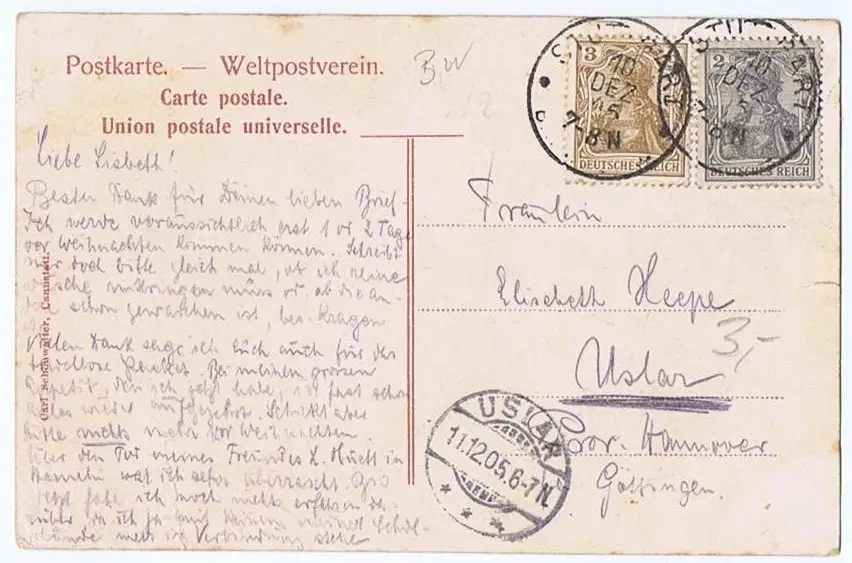 Postkarte. — Weltpostverein.
Carte postale.
Union postale universelle.
Liebe Lisbeth!
Besten Dank für Deinen lieben Brief.
Ich werde voraussichtlich erst 1 od 2 Tage
vor Weihnachten kommen können. Schreibt
mir doch bitte gleich mal, ob ich reine
Wäsche mitbringen muss or. ob die an-
schon gewaschen ist, bes. Kragen
Vielen Dank sage ich Euch auch für das
tadellose Packet. Bei meinem grossen
Appetit, den ich jetzt habe, ist fast schon
alles wieder aufgezehrt. Schickt aber
bitte nichts mehr vor Weihnachten.
Über den Tod meines Freundes
Hameln war ich sehr überrascht. Bis
jetzt habe ich noch nichts erfahren da-
rüber, da ich ja mit keinem meiner Schul-
freunde mehr in Verbindung stehe
Carl Schönwalter, Cannstatt.
BW
3
DEUTSCHES REICH
2
DEUTSCHES REICH
STUTTGART
10
DEZ
05
7-8 N
STUTTGART
10
DEZ
7-8 N
Fräulein
Elisabeth Heepe
Uslar
Prov. Hannover
Göttingen.
3,-
USLAR
11.12.05.6-7N.